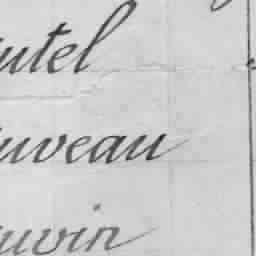 utel
uveau
uvin